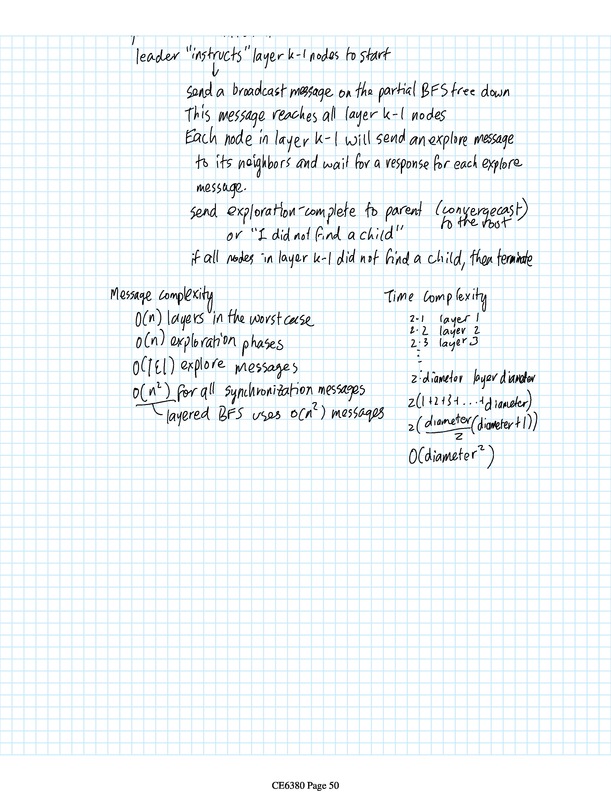 leader "instructs" layer k-1 nodes to start
↓
send a broadcast message on the partial BFS tree down
This message reaches all layer k-1 nodes
Each node in layer k-1 will send an explore message
to its neighbors and wait for a response for each explore
message.
send exploration-complete to parent (convergecast)
to the root
or "I did not find a child"
if all nodes in layer k-1 did not find a child, then terminate
Message complexity
O(n) layers in the worst case
O(n) exploration phases
O(|E|) explore messages
O(n²) for all synchronization messages
layered BFS uses O(n²) messages
Time Complexity
2·1 layer 1
2·2 layer 2
2·3 layer 3
⋮
2·diameter layer diameter
2(1+2+3+...+diameter)
2(diameter/2(diameter+1))
O(diameter²)
CE6380 Page 50